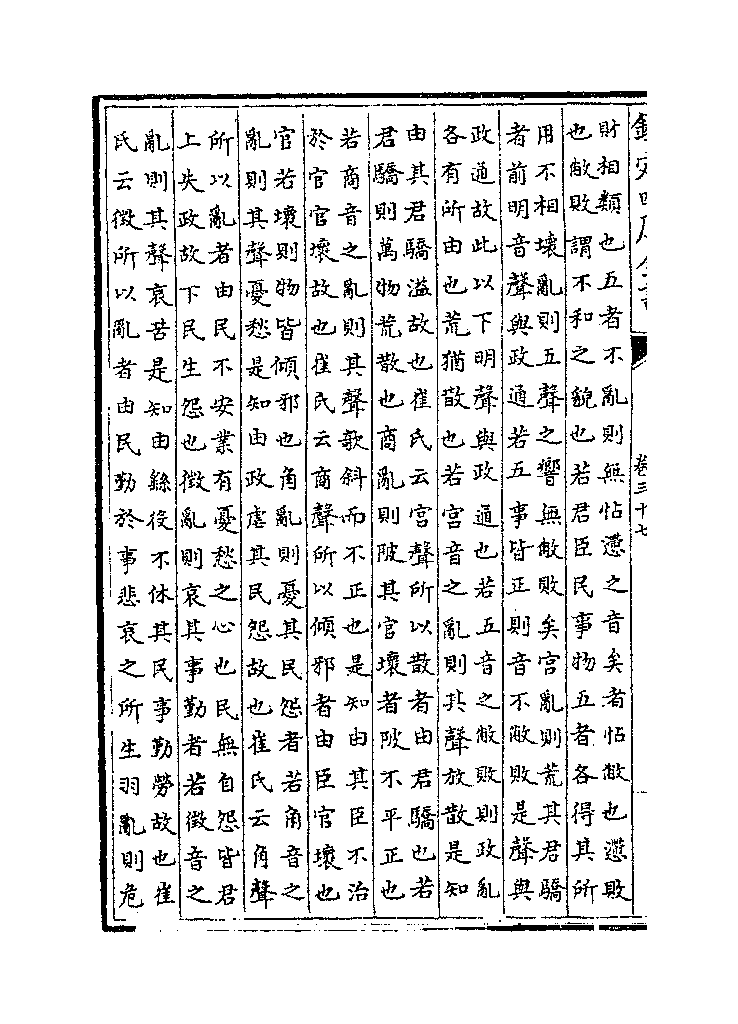 欽定四庫全書
卷三十七
財相類也五者不亂則無怗懘之音矣者怗敝也懘敗
也敝敗謂不和之貌也若君臣民事物五者各得其所
用不相壞亂則五聲之響無敝敗矣宮亂則荒其君驕
者前明音聲與政通若五事皆正則音不敝敗是聲與
政通故此以下明聲與政通也若五音之敝敗則政亂
各有所由也荒猶散也若宮音之亂則其聲放散是知
由其君驕溢故也崔氏云宮聲所以散者由君驕也若
君驕則萬物荒散也商亂則陂其官壞者陂不平正也
若商音之亂則其聲歌斜而不正也是知由其臣不治
於官官壞故也崔氏云商聲所以傾邪者由臣官壞也
官若壞則物皆傾邪也角亂則憂其民怨者若角音之
亂則其聲憂愁是知由政虐其民怨故也崔氏云角聲
所以亂者由民不安業有憂愁之心也民無自怨皆君
上失政故下民生怨也徵亂則哀其事勤者若徵音之
亂則其聲哀苦是知由繇役不休其民事勤勞故也崔
氏云徵所以亂者由民勤於事悲哀之所生羽亂則危